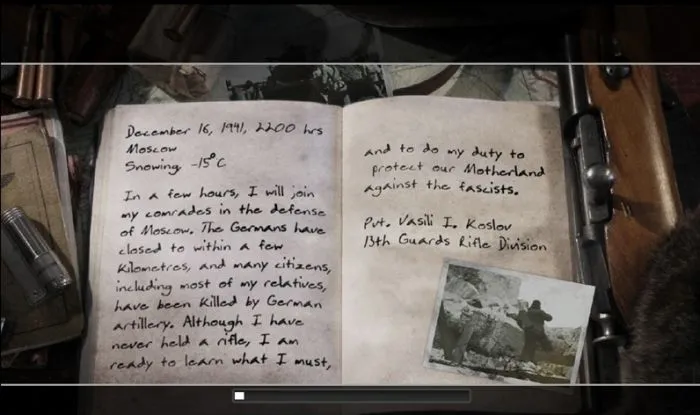 December 16, 1941, 2200 hrs
Moscow
Snowing, -15°C
In a few hours, I will join
my comrades in the defense
of Moscow. The Germans have
closed to within a few
kilometres, and many citizens,
including most of my relatives,
have been killed by German
artillery. Although I have
never held a rifle, I am
ready to learn what I must,
and to do my duty to
protect our Motherland
against the fascists.
Pvt. Vasili I. Koslov
13th Guards Rifle Division